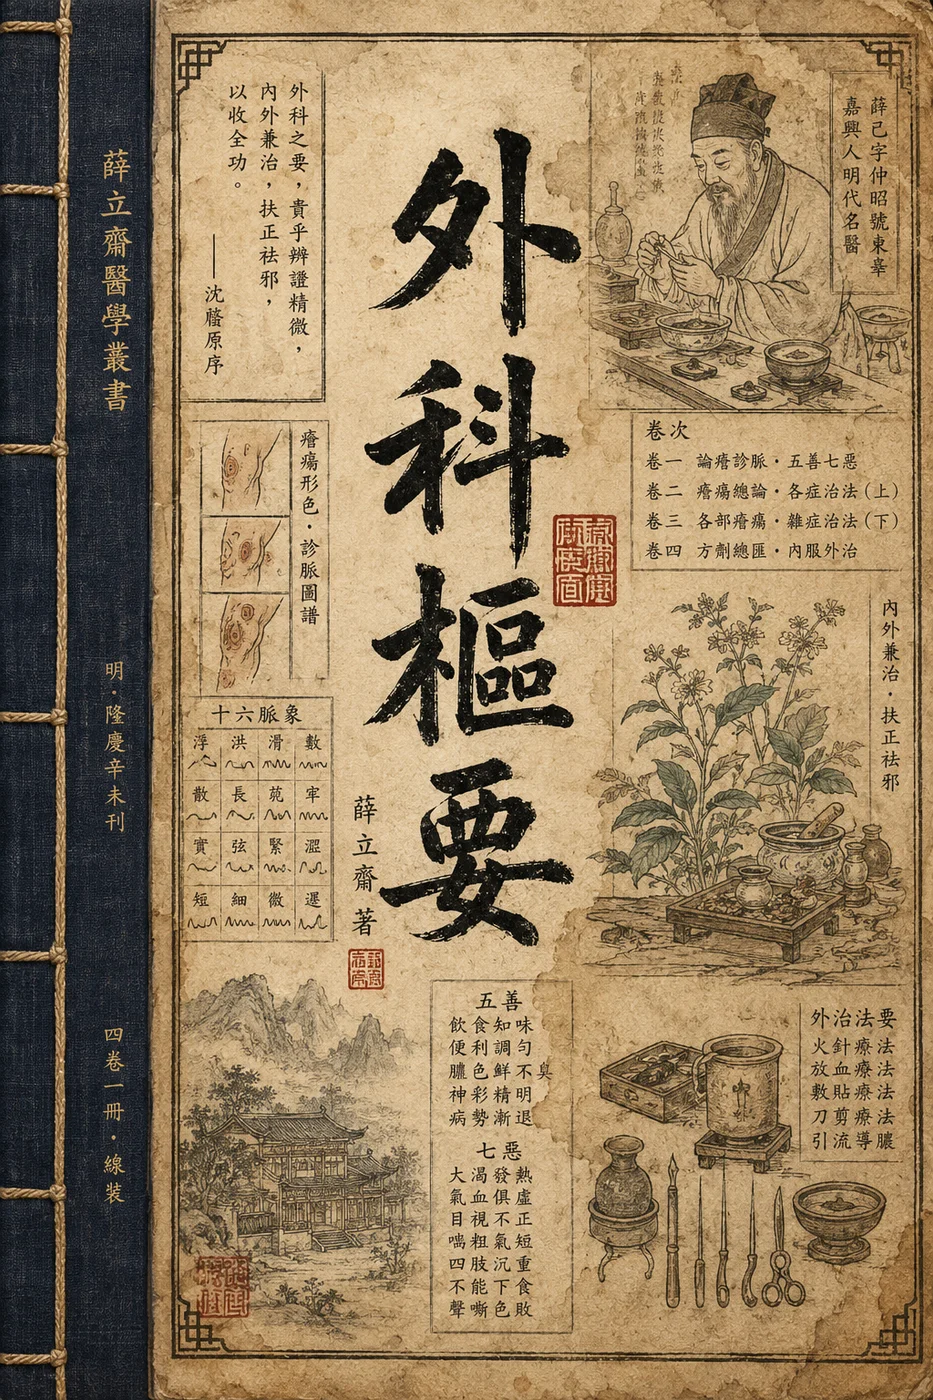 薛立齋醫學叢書
明·隆慶辛未刊
四卷一冊·線裝
外科樞要
薛立齋 著
薛己字仲昭號東臯
嘉興人明代名醫
外科之要，貴乎辨證精微，
內外兼治，扶正祛邪，
以收全功。
——沈原序
卷次
卷一 論瘡診脈·五善七惡
卷二 瘡瘍總論·各症治法（上）
卷三 各部瘡瘍·雜症治法（下）
卷四 方劑總匯·內服外治
瘡瘍形色·診脈圖譜
內外兼治·扶正祛邪
十六脈象
浮 洪 滑 數
散 長 芤 牢
實 弦 緊 澀
短 細 微 遲
五善
飲食知味
便利調勻
膿色鮮不臭
神彩精明
病勢漸退
七惡
大渴發熱
氣血俱虛
目視不正
喘粗氣短
四肢沉重
不能下食
聲嘶色敗
外治法要
火針療法
放血療法
敷貼療法
刀剪療法
引流導膿